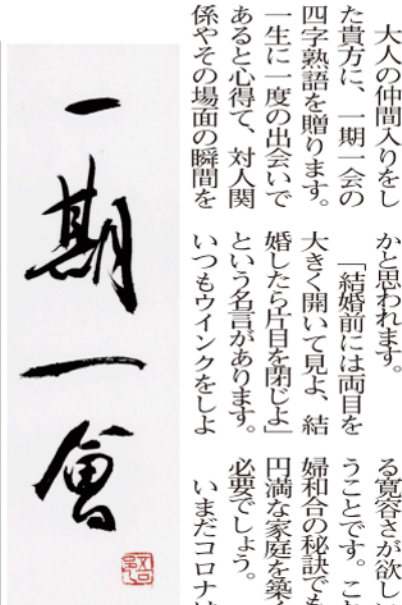 大人の仲間入りをし
た貴方に、一期一会の
四字熟語を贈ります。
一生に一度の出会いで
あると心得て、対人関
係やその場面の瞬間を
かと思われます。
「結婚前には両目を
大きく開いて見よ、結
婚したら片目を閉じよ」
という名言があります。
いつもウインクをしよ
る寛容さが欲し
うことです。こ
婦和合の秘訣でも
円満な家庭を築
必要でしょう。
いまだコロナ
一期一會